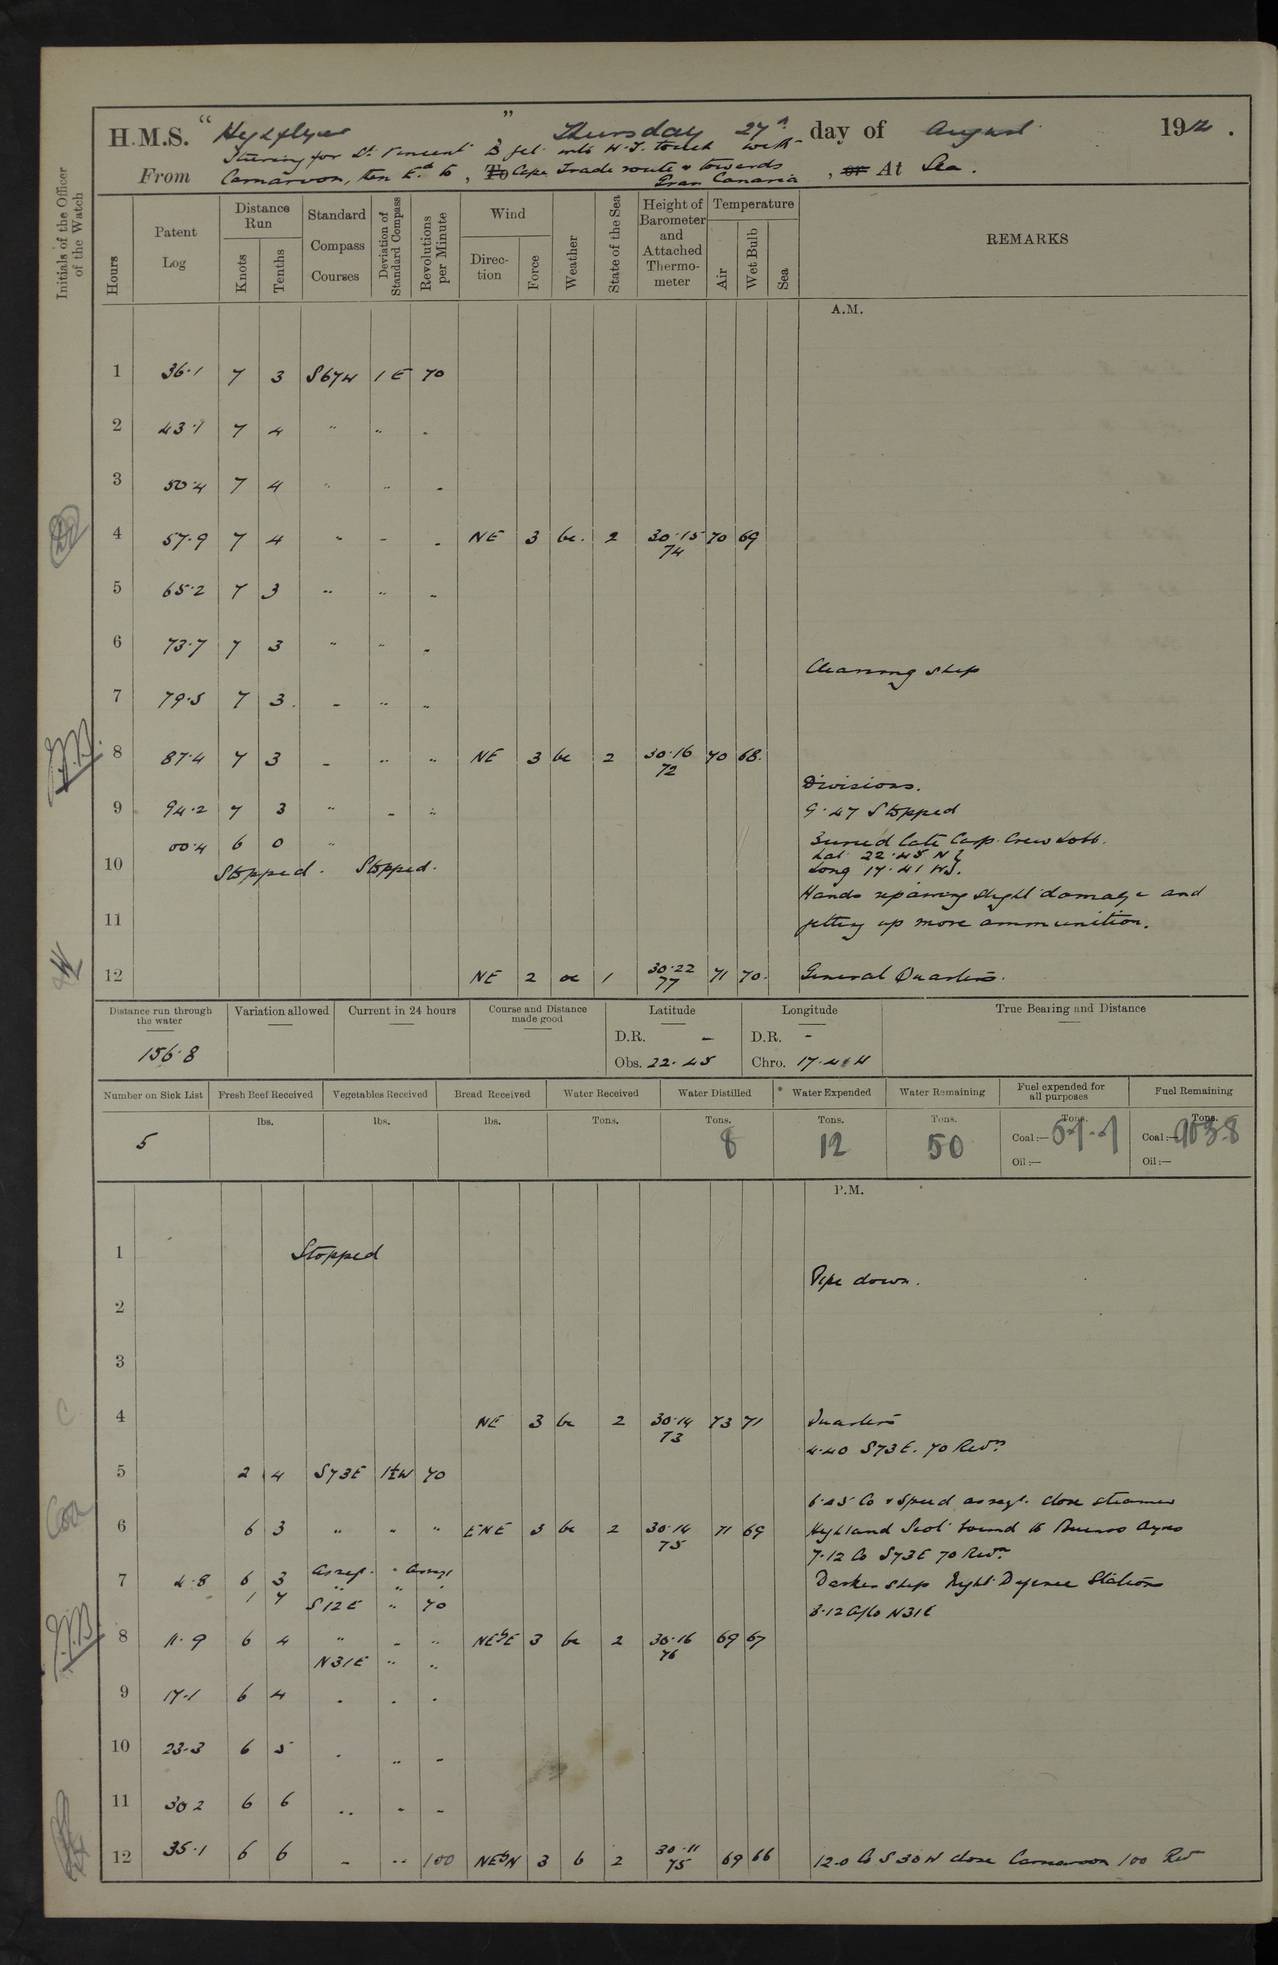 H.M.S. "Highflyer", Thursday 27th day of August 1914.
From Steering for St. Vincent to get into W.T. touch with
Carnarvon, then Ed to, To Cape Trade route & towards
Gran Canaria, or At Sea.
Initials of the Officer of the Watch
Hours Patent Log Distance Run Knots Tenths Standard Compass Courses Deviation of Standard Compass Revolutions per Minute Wind Direction Force Weather State of the Sea Height of Barometer and Attached Thermometer Temperature Air Wet Bulb Sea REMARKS
A.M.
1 36.1 7 3 S67W 1E 70
2 43.1 7 4 " " "
3 50.4 7 4 " " "
4 57.9 7 4 " " " NE 3 bc. 2 30.15 74 70 69
5 65.2 7 3 " " "
6 73.7 7 3 " " "
Cleaning ship
7 79.5 7 3 " " "
8 87.4 7 3 " " " NE 3 bc 2 30.16 72 70 68
Divisions.
9 94.2 7 3 " " " 9.47 Stopped
00.4 6 0 " Buried late Corp. Crew
Lat 22.45 N
10 Stopped. Stopped. Long 17.41 W
Hands repairing slight damage and
11 getting up more ammunition.
12 NE 2 oc 1 30.22 77 71 70 General Quarters.
Distance run through the water Variation allowed Current in 24 hours Course and Distance made good Latitude Longitude True Bearing and Distance
156.8 D.R. - D.R. -
Obs. 22.45 Chro. 17.41
Number on Sick List Fresh Beef Received Vegetables Received Bread Received Water Received Water Distilled * Water Expended Water Remaining Fuel expended for all purposes Fuel Remaining
lbs. lbs. lbs. Tons. Tons. Tons. Tons. Tons. Tons.
5 8 12 50 Coal:— Coal:—
Oil:— Oil:—
P.M.
1 Stopped
Pipe down.
2
3
4 NE 3 bc 2 30.14 73 73 71 Quarters
4.40 S73E. 70 Revns
5 2 4 S73E 1½W 70
6.25 Co & Speed as reqd. close steamer
6 6 3 " " " ENE 3 bc 2 30.14 75 71 69 Highland Scot bound to Buenos Ayres
7.12 Co S73E 70 Revns
7 4.8 6 3 As req. " As req. Darken ship Night Defence Stations
1 7 S12E " 70 8.12 A/Co N31E
8 11.9 6 4 " " " NEbE 3 bc 2 30.16 76 69 67
N31E " "
9 17.1 6 4 " " "
10 23.3 6 5 " " "
11 30.2 6 6 " " "
12 35.1 6 6 " " 100 NEbN 3 b 2 30.11 75 69 66 12.0 Co S30W close Carnarvon 100 Rev